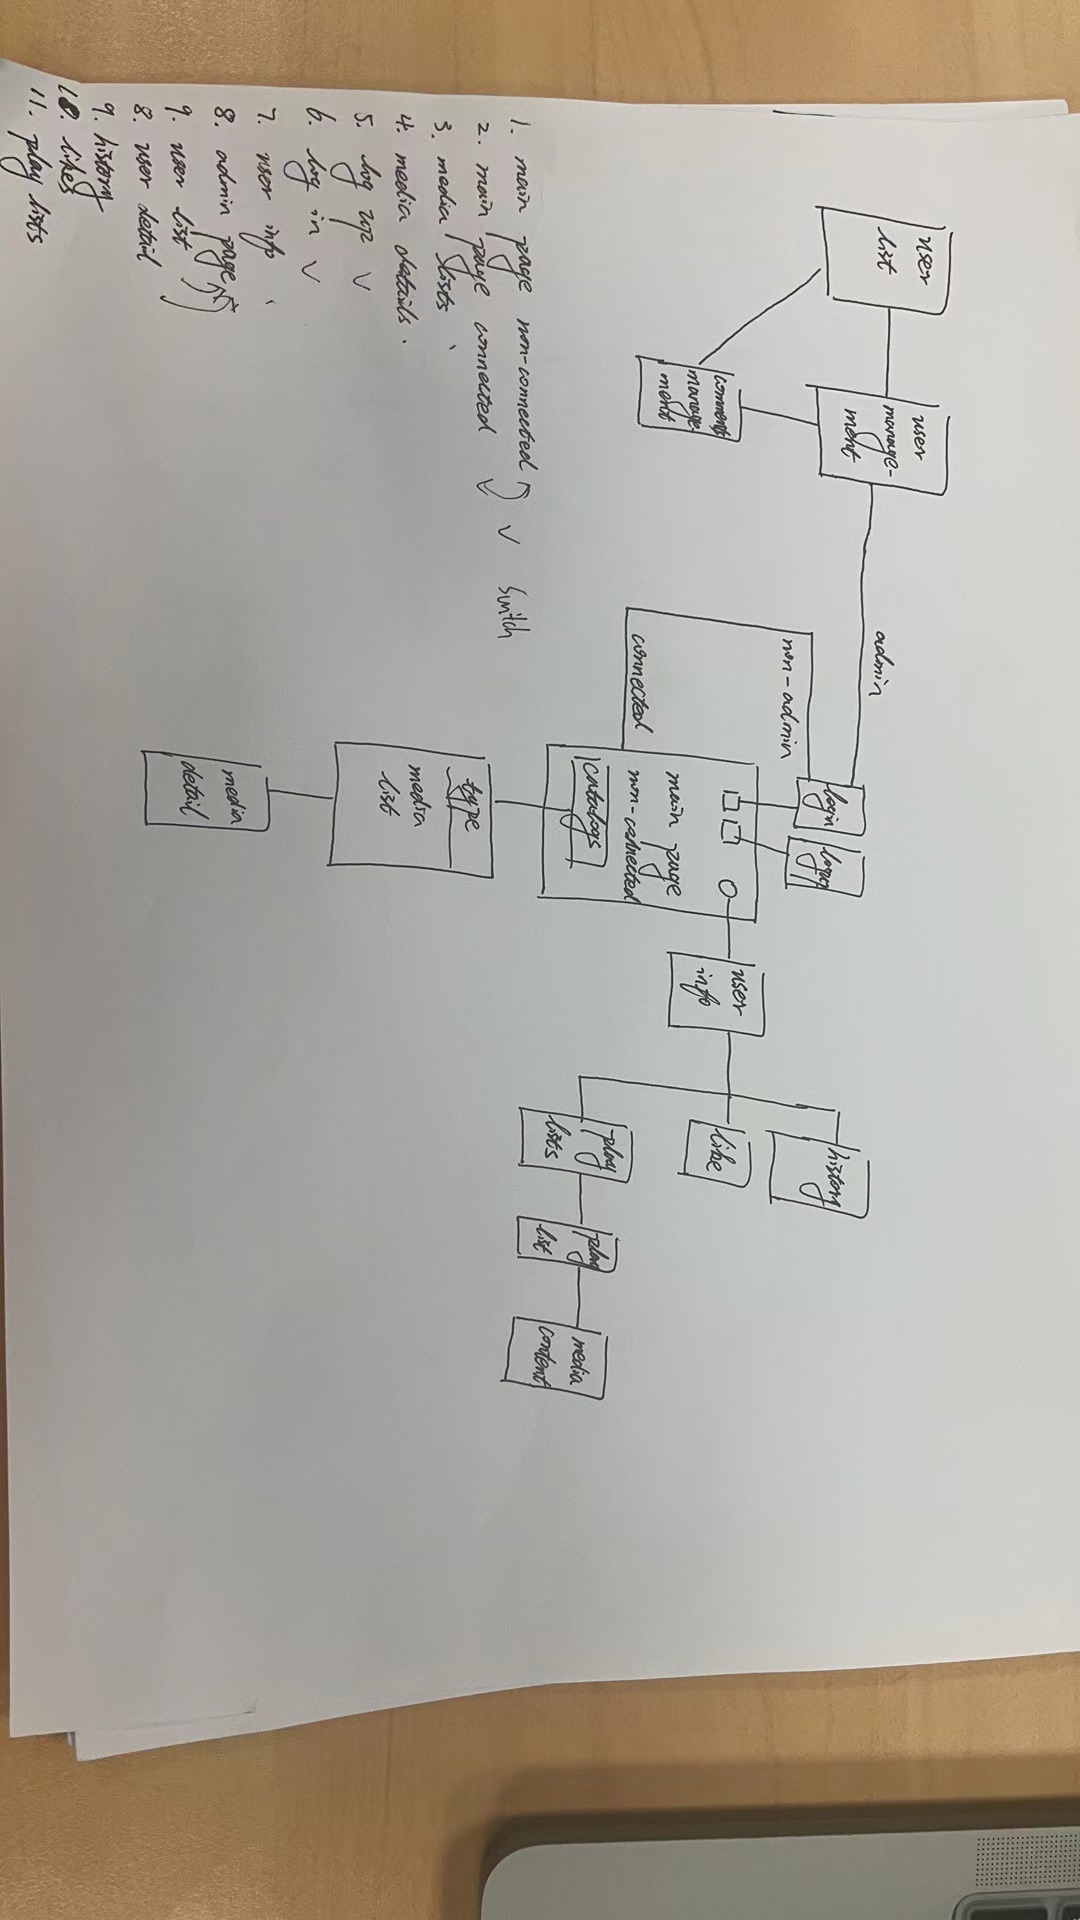 user
list
user
manage-
ment
admin
login
logup
non-admin
connected
comments
manage-
ment
main page
non-connected
catalogs
user
info
history
like
play
lists
play
list
media
content
type
media
list
media
detail
1. main page non-connected
2. main page connected
switch
3. media lists
4. media details.
5. log up
6. log in
7. user info
8. admin page
9. user list
8. user detail
9. history
10. likes
11. play lists